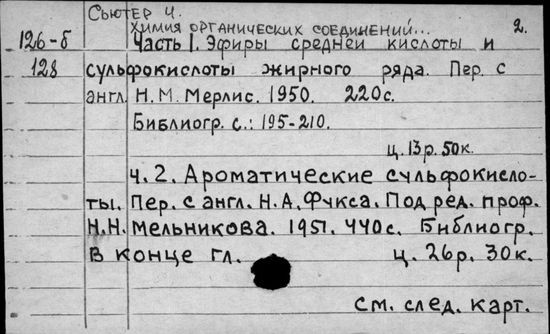 Сьютер Ч.
Химия органических соединений... 2.
126-б Часть 1. Эфиры средней кислоты и
128 сульфокислоты жирного ряда. Пер. с
англ. Н.М. Мерлис. 1950. 220с.
Библиогр. с.: 195-210.
ц. 13р. 50к.
ч. 2. Ароматические сульфокисло-
ты. Пер. с англ. Н.А. Фукса. Под ред. проф.
Н.Н. Мельникова. 1951. 440с. Библиогр.
в конце гл. ц. 26р. 30к.
см. след. карт.